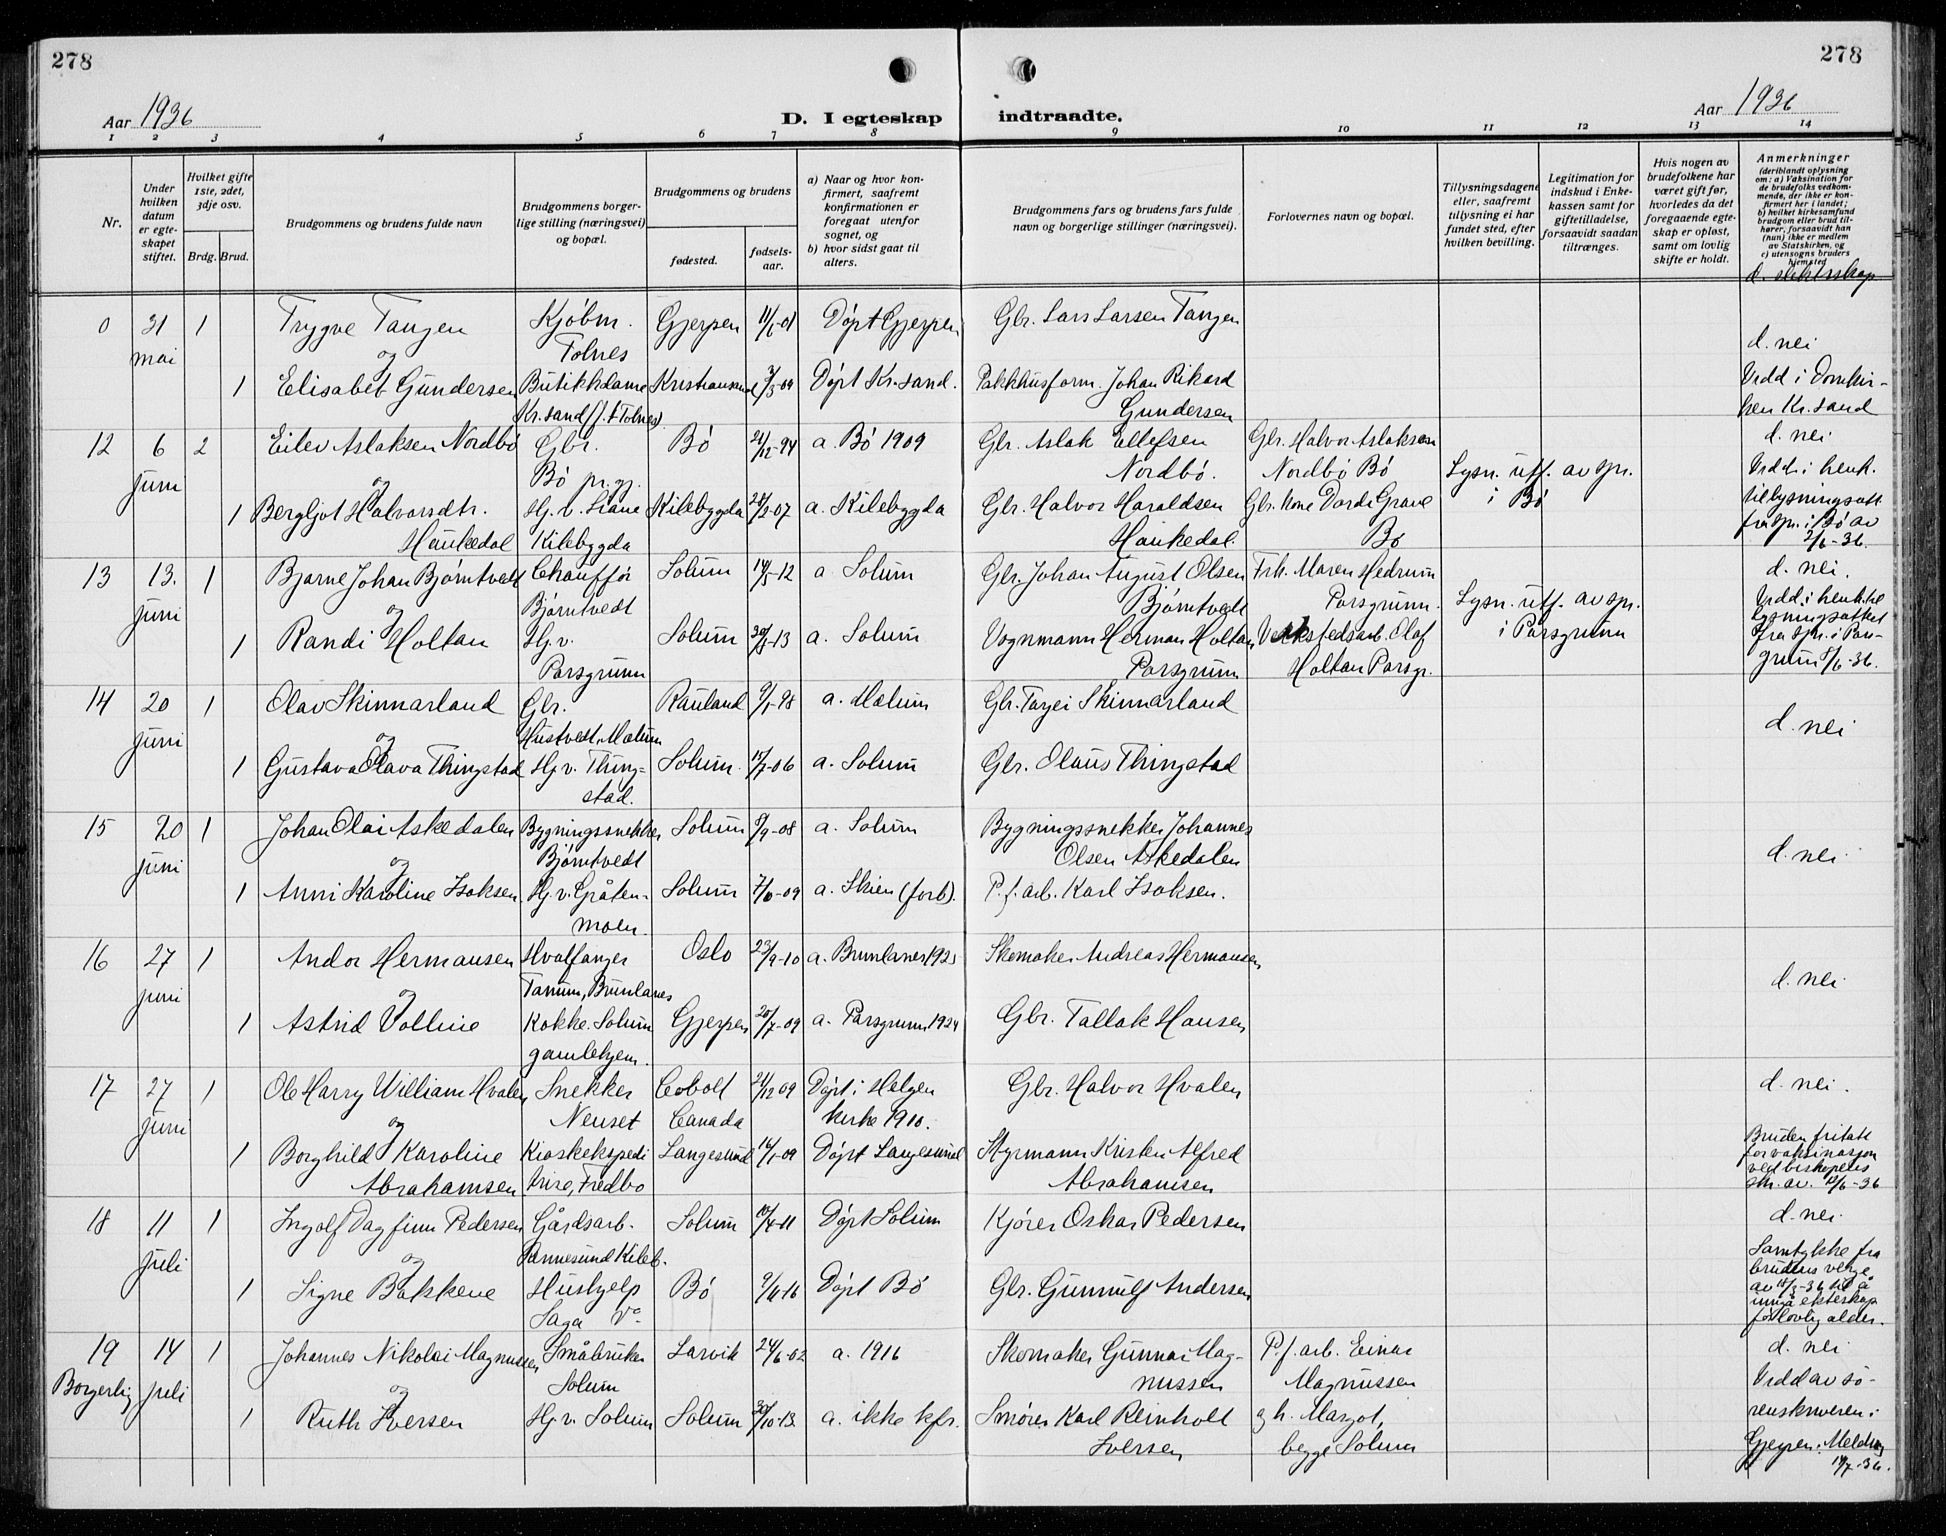 278
278
Aar 1936
D. I egteskap indtraadte.
Aar 1936
1 2 3 4 5 6 7 8 9 10 11 12 13 14
Nr.
Under hvilken datum er egteskapet stiftet.
Hvilket gifte 1ste, 2det, 3dje osv.
Brdg. Brud.
Brudgommens og brudens fulde navn
Brudgommens borgerlige stilling (næringsvei) og bopæl.
Brudgommens og brudens
fødested.
fødselsaar.
a) Naar og hvor konfirmert, saafremt konfirmationen er foregaat utenfor sognet, og
b) hvor sidst gaat til alters.
Brudgommens fars og brudens fars fulde navn og borgerlige stillinger (næringsvei).
Forlovernes navn og bopæl.
Tillysningsdagene eller, saafremt tillysning ei har fundet sted, efter hvilken bevilling.
Legitimation for indskud i Enkekassen samt for giftetilladelse, forsaavidt saadan tiltrænges.
Hvis nogen av brudefolkene har været gift før, hvorledes da det foregaaende egteskap er opløst, samt om lovlig skifte er holdt.
Anmerkninger (deriblandt oplysning om: a) Vaksination for de brudefolks vedkommende, der ikke er konfirmert her i landet; b) hvilket kirkesamfund brudgom eller brud tilhører, forsaavidt han (hun) ikke er medlem av Statskirken, og c) utensogns bruders hjemsted
d. slektsskap
0 31 mai 1 Trygve Tangen Kjøbm. Tolnes Gjerpen 11/6-01 Døpt Gjerpen Gbr. Lars Larsen Tangen d. nei
og
1 Elisabet Gundersen Butikkdame Kr.sand (f. t Tolnes) Kristiansand Døpt Kr.sand. Pakkhusform. Johan Rikard Gundersen Vidd i Domkirken Kr.sand
12 6 juni 2 Eilev Aslaksen Nordbø Gbr. Bø pr.gj. Bø 21/12-94 a. Bø 1909 Glr. Aslak Ellefsen Nordbø. Glr. Halvor Aslaksen Nordbø Bø Lysn. utf. av spr. i Bø d. nei
og
1 Bergljot Halvorsdtr. Haukedal Hj. v. Liane Kilebygda Kilebygda 28/2-07 a. Kilebygda Glr. Halvor Haraldsen Haukedal. Glr. kone Dordi Grave Bø Vidd. i henh. til lysningsatt fra spr. i Bø av 2/6-36.
13 13. juni 1 Bjarne Johan Bjørntvedt Chauffør Bjørntvedt Solum 14/5-12 a. Solum Glr. Johan August Olsen Bjørntvedt Frk. Maren Hedrum Porsgrunn. Lysn. utf. av spr. i Porsgrunn d. nei.
og
1 Randi Holtan Hj. v. Porsgrunn Solum a. Solum Vognmann Herman Holtan Porsgrunn Verkstedsarb. Olaf Holtan Porsgr. Vidd. i henh. til lysningsattest fra spr. i Porsgrunn 8/6-36.
14 20 juni 1 Olav Skinnarland Glr. Hustvedt, Mælum Rauland 9/1-98 a. Mælum Glr. Tarjei Skinnarland d. nei
og
1 Gustava Olava Thingstad Hj. v. Thingstad. Solum. 15/7-06 a. Solum Glr. Olaus Thingstad
15 20 juni 1 Johan Olai Askedalen Bygningssnekker Bjørntvedt Solum 5/9-08 a. Solum Bygningssnekker Johannes Olsen Askedalen d. nei
og
1 Anni Karoline Isaksen Hj. v. Gråtenmoen. Solum a. Skien (forb). P. f. arb. Karl Isaksen.
16 27 juni 1 Andor Hermansen Hvalfanger Tanum, Brunlanes Oslo 23/9-10 a. Brunlanes 1925 Skomaker Andreas Hermansen d. nei
og
1 Astrid Volline Kokke. Solum gamlehjem. Gjerpen 20/7-09 a. Porsgrunn 1924 Gbr. Tallak Hansen
17 27 juni 1 Ole Harry William Hvalen Snekker Nenset Cobolt Canada 21/12 09 Døpt i Helgen kirke 1910. Gbr. Halvor Hvalen d. nei.
og
1 Borghild Karoline Abrahamsen Kioskekspeditrise, Fredbo Langesund 16/1-09 Døpt Langesund Styrmann Kristen Alfred Abrahamsen Bruden fritatt for vaksinasjon ved biskopens skr. av. 12/6-36
18 11 juli 1 Ingolf Dagfinn Pedersen Gårdsarb. Rønnesund Kileb. Solum 10/4-11 Døpt Solum Kjører Oskar Pedersen d. nei
og
1 Signe Bakkene Hushjelp Saga Bø 9/4-16 Døpt Bø Glr. Gunnulf Andersen Samtykke fra brudens verge av 18/3-36 til å inngå ekteskap før lovlig alder.
19 Borgerlig 14 juli 1 Johannes Nikolai Magnussen Småbruker Solum Larvik 24/6-02 a. 1916 Skomaker Gunnar Magnussen P. f. arb. Einar Magnussen d. nei
og
1 Ruth Iversen Hj. v. Solum Solum 30/10-13 a. ikke kfr. Smører Karl Reinholt Iversen og h. Margot, begge Solum Vidd av sorenskriveren i Gjerpen. Melding 14/7-36.